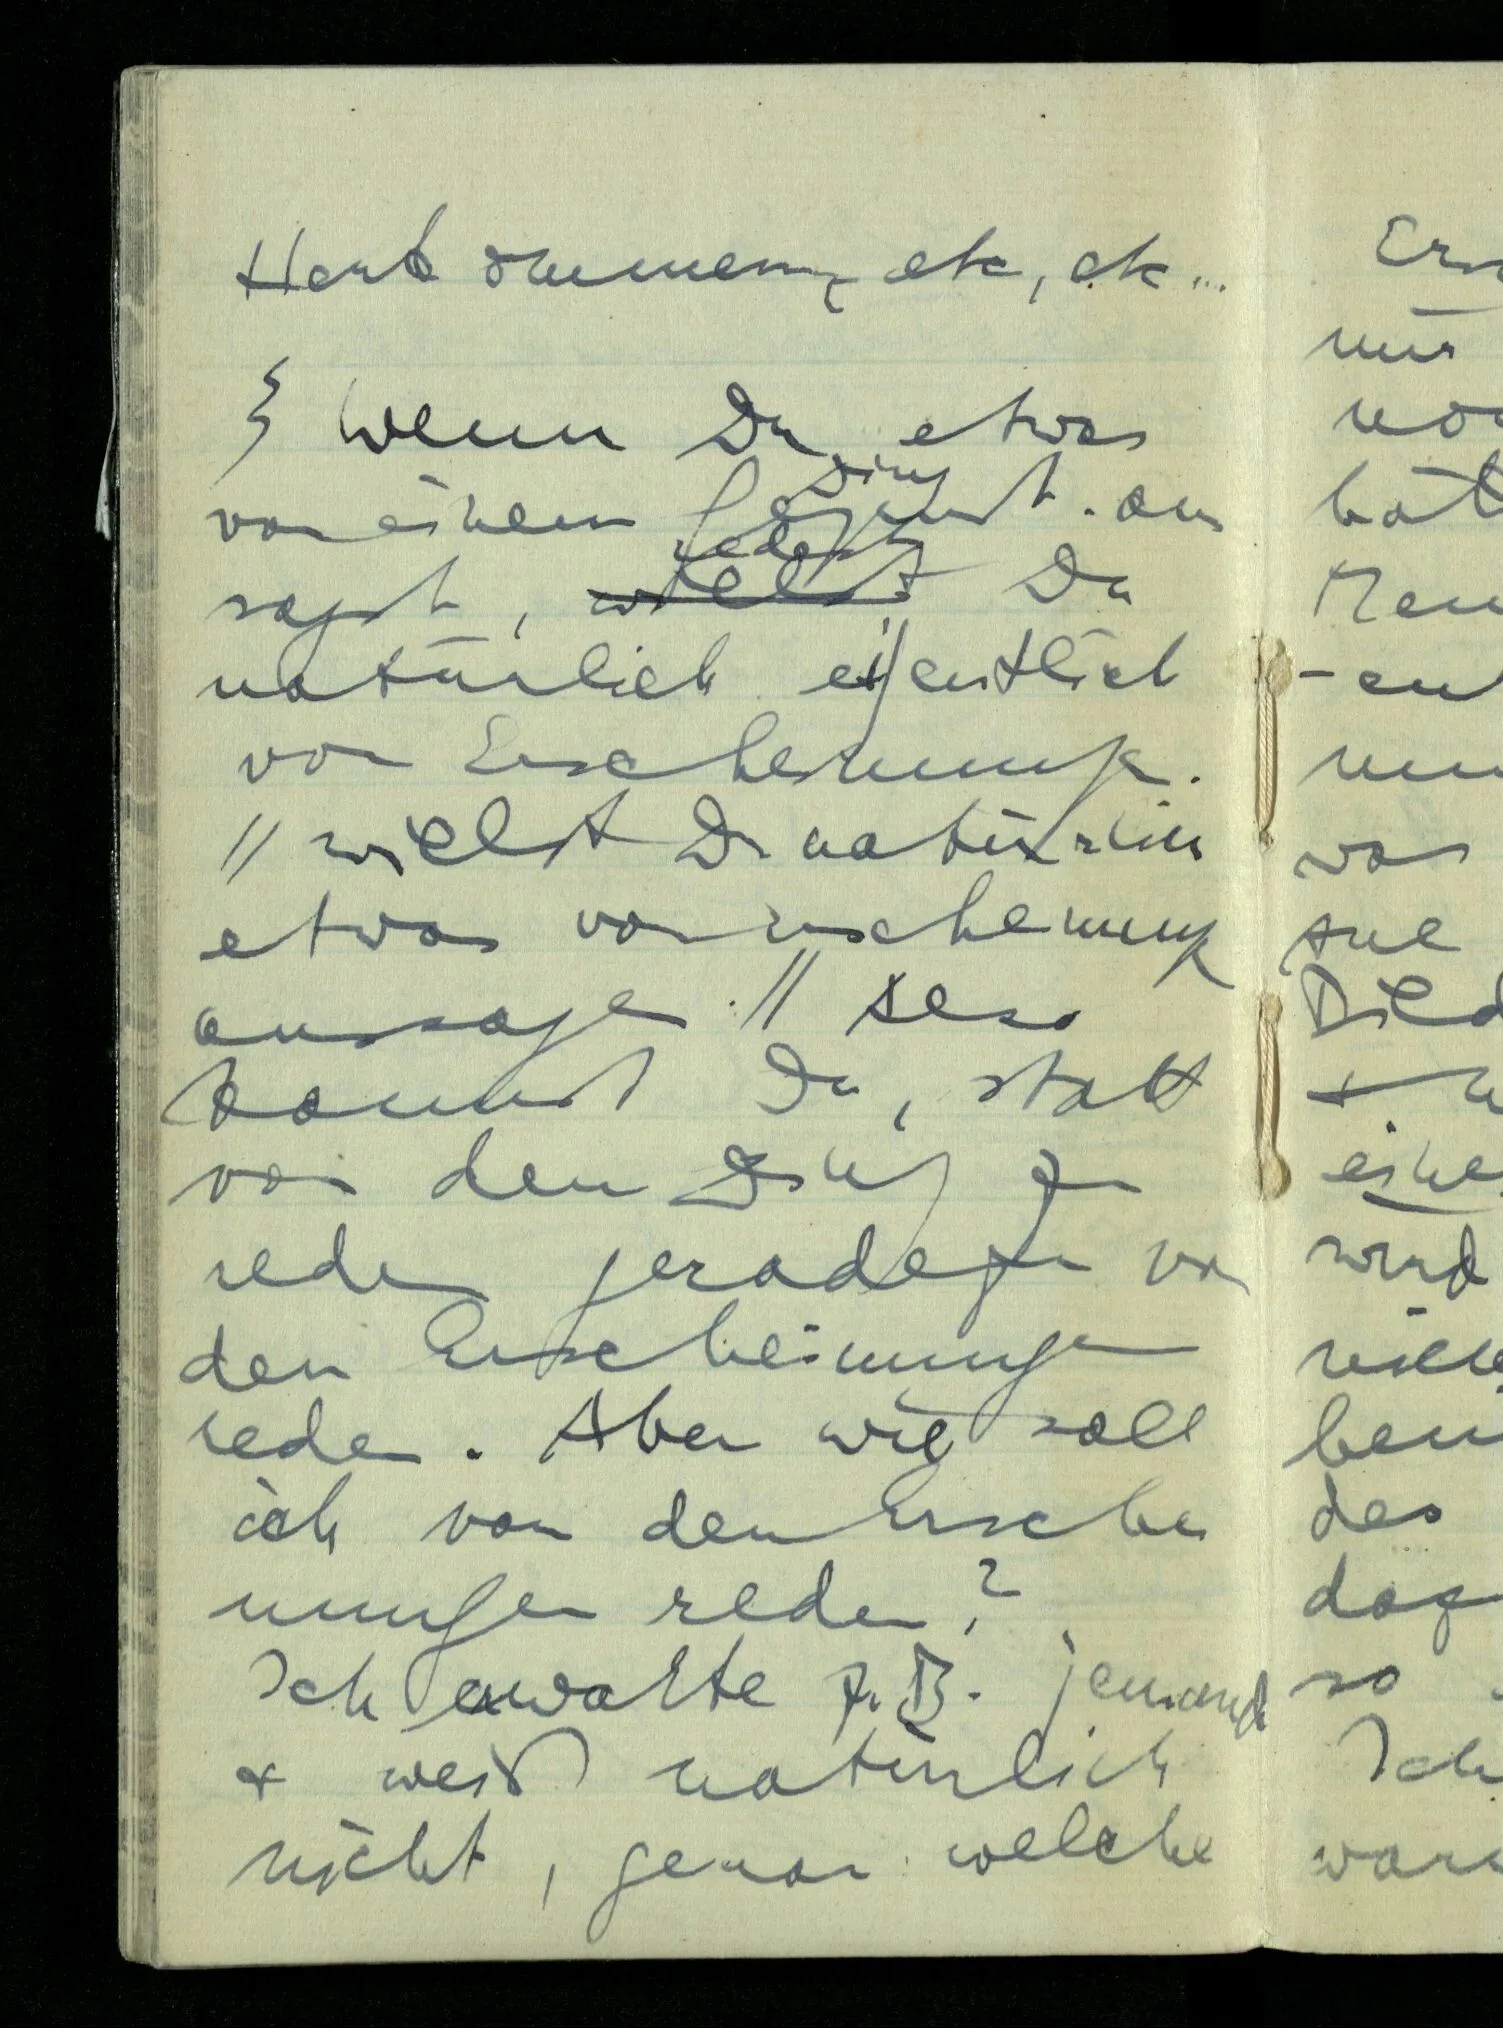 Herkommen, etc, etc...
} Wenn Du etwas
Ding
von einem Gegenst. aus
redest
sagst, willst Du
natürlich eigentlich
von Erscheinungen
// willst Du natürlich
etwas von Erscheinungen
aussagen // Also
kannst Du, statt
von den Ding zu
reden geradezu von
den Erscheinungen
reden. Aber wie soll
ich von den Erschei
nungen reden?
Ich erwarte z.B. jemand
& weiß natürlich
nicht, genau welche
mir
hät
-en
was
+
eine
wird
des
so
Ich